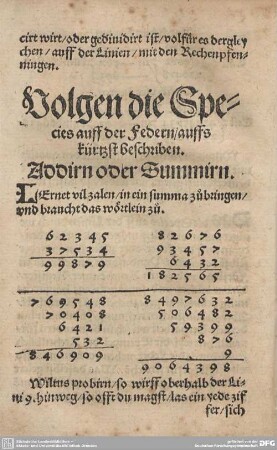 cirt wirt/oder gediuidirt ist/volfür es dergley
chen/auff der Linien/mit den Rechenpfen-
ningen.
Volgen die Spe-
cies auff der Federn/auffs
kürtzst beschriben.
Addirn oder Summirn.
LErnet vil zalen/in ein summa zů bringen/
vnd braucht das wörtlein zů.
6 2 3 4 5
3 7 5 3 4
9 9 8 7 9
8 2 6 7 6
9 3 4 5 7
6 4 3 2
1 8 2 5 6 5
7 6 9 5 4 8
7 0 4 0 8
6 4 2 1
5 3 2
8 4 6 9 0 9
8 4 9 7 6 3 2
5 0 6 4 8 2
5 9 3 9 9
8 7 6
9
9 0 6 4 3 9 8
Wiltus probirn/so wirff oberhalb der Li-
ni 9. hinweg/so offt du magst/las ein yede zif
fer/sich